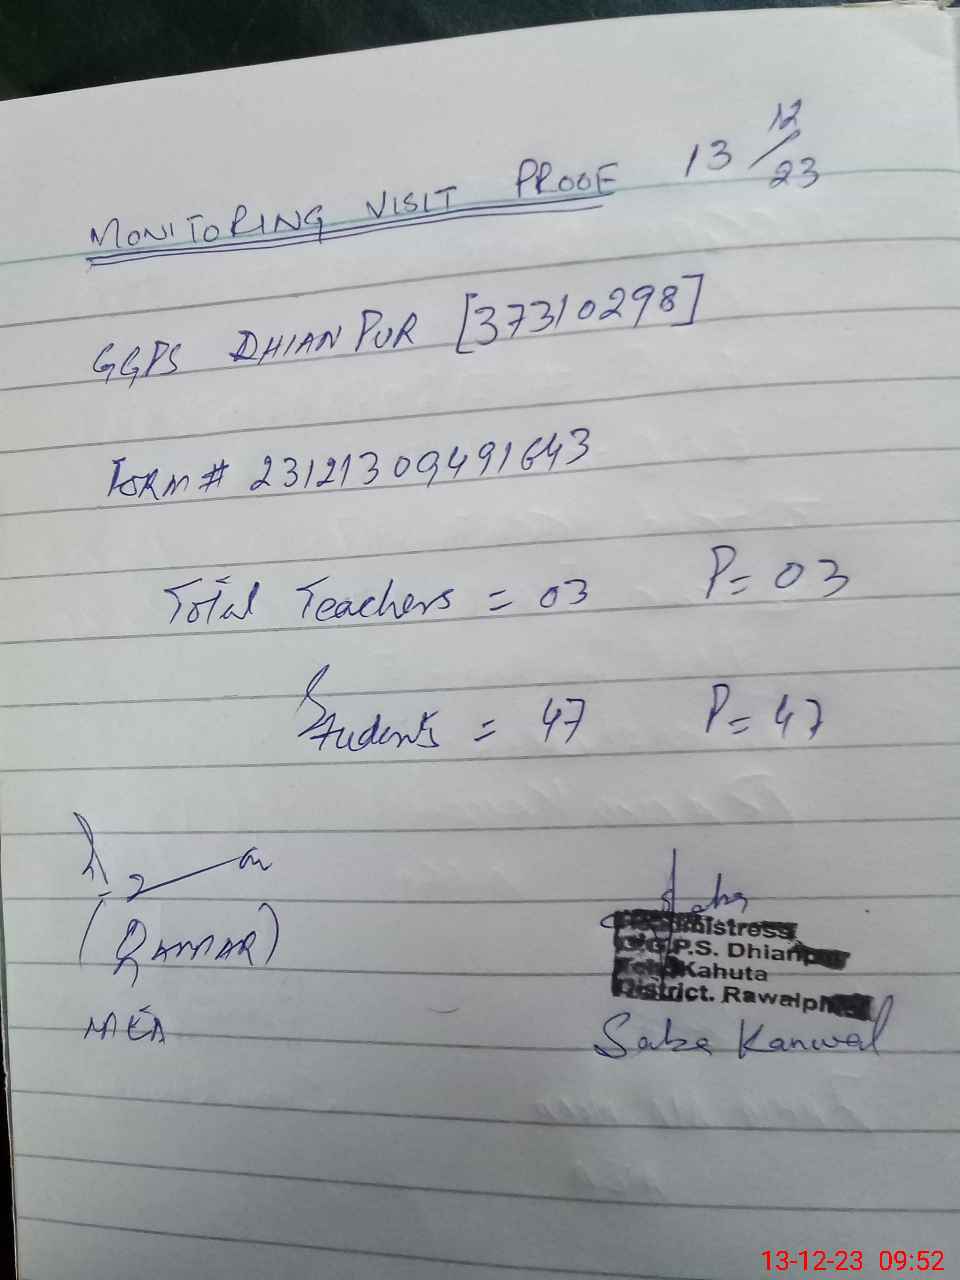 MONITORING VISIT PROOF 13/12/23
GGPS DHIANPUR [37310298]
FORM # 23121309491643
Total Teachers = 03 P= 03
Students = 47 P= 47
Saba
(QAMAR)
mistress
G.G.P.S. Dhianpur
Teh. Kahuta
MEA
District. Rawalp
Saba Kanwal
13-12-23 09:52